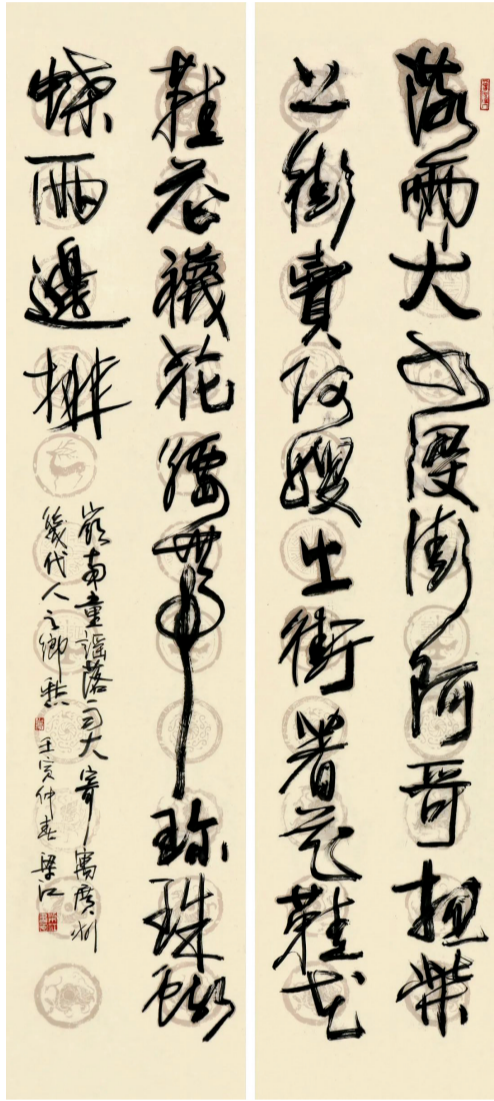 落雨大水浸街阿哥担柴
上街賣阿嫂出街着花鞋花
鞋花襪花腰帶珍珠蝴
蝶兩邊排
嶺南童謠落雨大寄寓廣州
幾代人之鄉愁 壬寅仲春 梁江